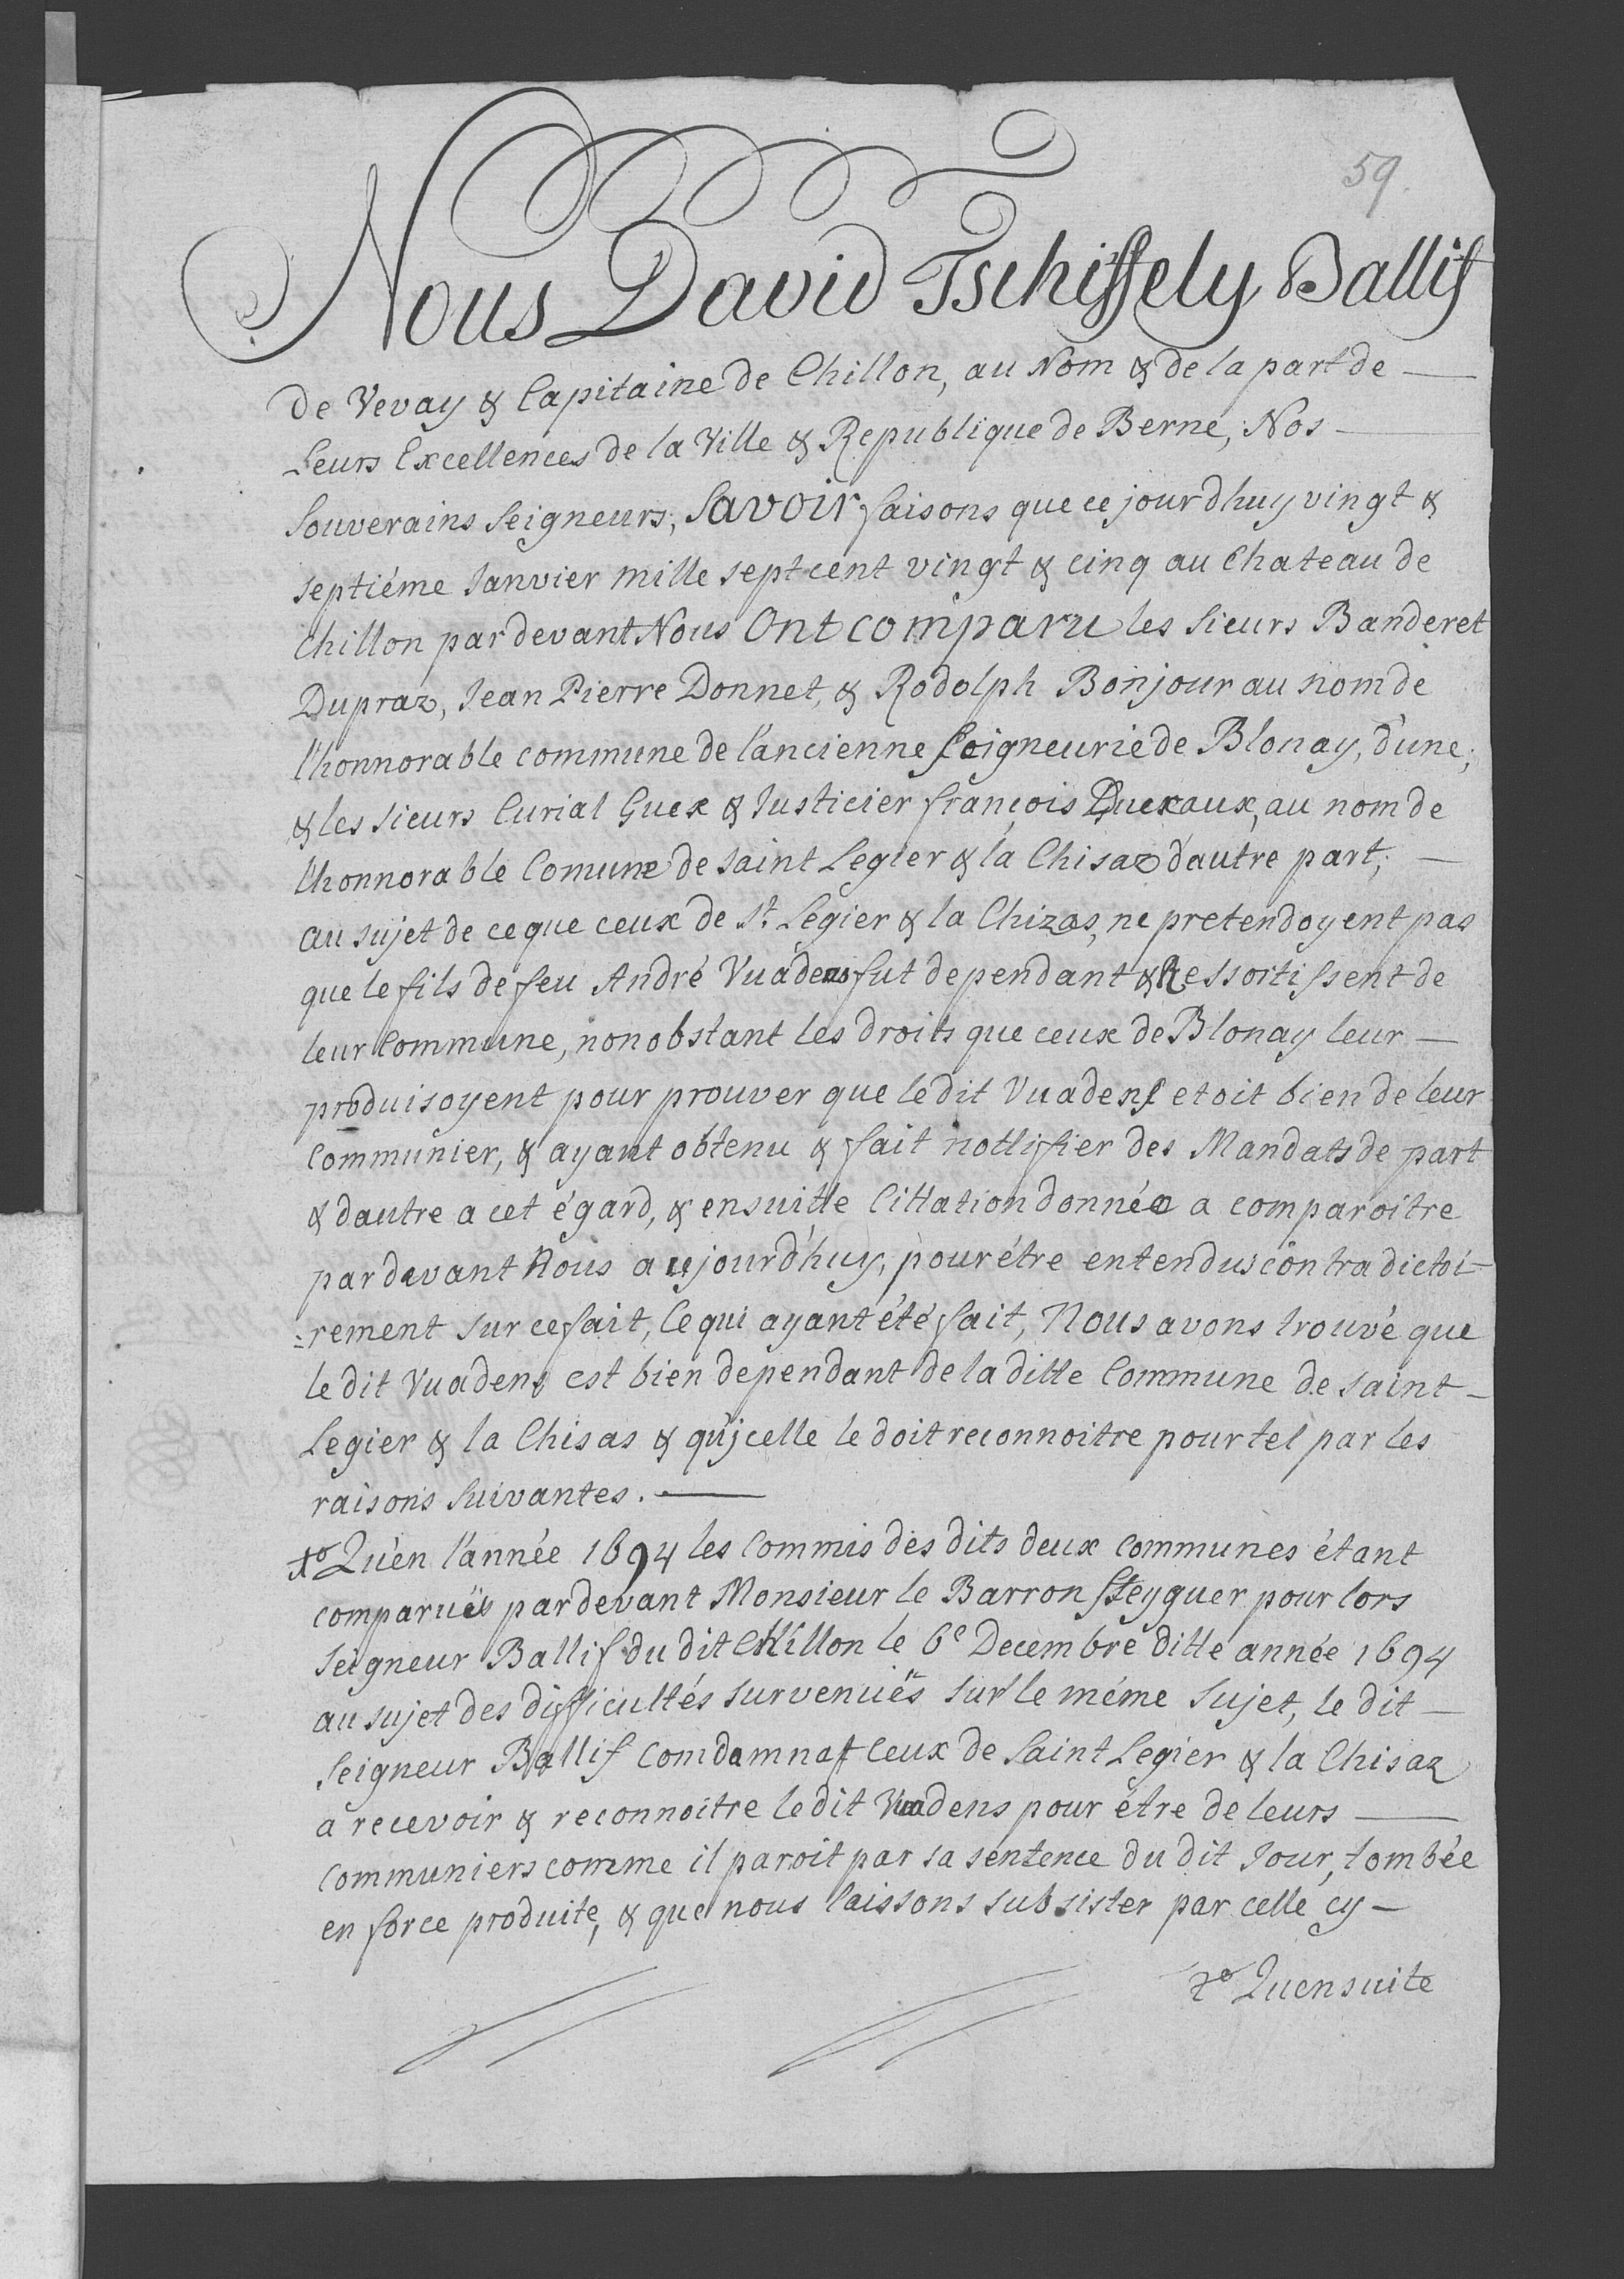 59.
Nous David Tschiffely Ballif
De Vevay & Capitaine de Chillon, au Nom & de la part de
Leurs Excellences de la Ville & Republique de Berne, Nos
Souverains Seigneurs; Savoir faisons que ce jourdhuy vingt &
septiéme Janvier mille sept cent vingt & cinq au Chateau de
Chillon par devant Nous Ont comparu les Sieurs Banderet
Dupraz, Jean Pierre Donnet, & Rodolph Bonjour au nom de
l'honnorable commune de l'ancienne Seigneurie de Blonay, d'une;
& les Sieurs Curial Guex & Justicier françois Ducraux, au nom de
l'honnorable Comune de Saint Legier & la Chisaz d'autre part;
au sujet de ce que ceux de St. Legier & la Chizas, ne pretendoyent pas
que le fils de feu André Vuadens fut dependant & Ressortissent de
leur Commune, nonobstant les droits que ceux de Blonay leur
produisoyent pour prouver que le dit Vuadens etoit bien de leur
Communier, & ayant obtenu & fait nottifier des Mandats de part
& dautre a cet égard, & ensuitte Cittation donnée a comparoitre
par devant Nous aujourd'huy, pour étre entendus contradictoi-
=rement sur ce fait, Ce qui ayant été fait, Nous avons trouvé que
le dit Vuadens est bien dependant de la ditte Commune de Saint-
Legier & la Chisas & qu'jcelle le doit reconnoitre pour tel par les
raisons Suivantes.
1o Qu'en l'année 1694 les Commis des dits deux communes étant
comparuës par devant Monsieur le Barron Steyguer pour lors
Seigneur Ballif du dit Chillon le 6e Decembre ditte année 1694
au sujet des difficultés survenuës sur le méme Sujet, le dit
Seigneur Ballif Comdamnat Ceux de Saint Legier & la Chisaz
a recevoir & reconnoitre le dit Vuadens pour étre de leurs
Communiers comme il paroit par sa sentence du dit Jour, tombée
en force produite, & que nous laissons subsister par celle cy
2o Quensuite